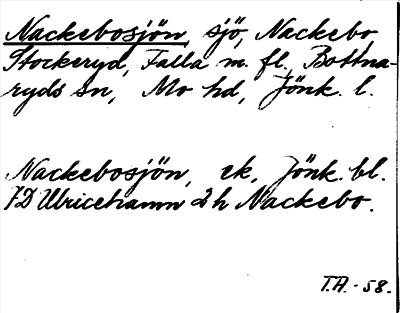 Nackebosjön, sjö, Nackebo,
Stockeryd, Falla m. fl., Bottna-
ryds sn, Mo hd, Jönk. l.
Nackebosjön, ek, Jönk. bl.
7D Ulricehamn 2h Nackebo.
T.A. -58.